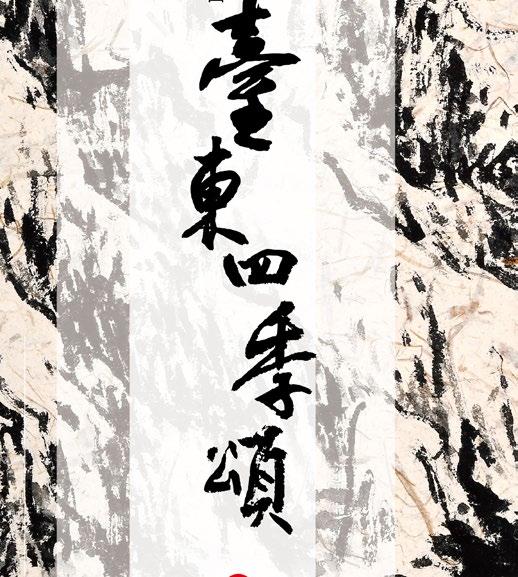 臺東四季頌